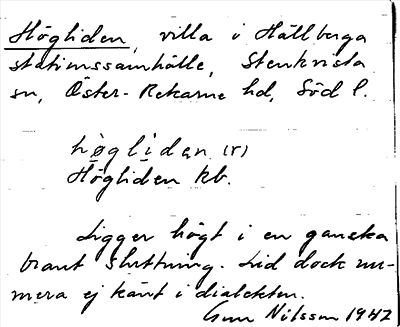 Högliden, villa i Hällberga
stationssamhälle, Stenkvista
sn, Öster-Rekarne hd, Söd l.
høgliden (r)
Högliden kb.
Ligger högt i en ganska
brant sluttning. Lid dock nu-
mera ej känt i dialekten.
Gun Nilsson 1942